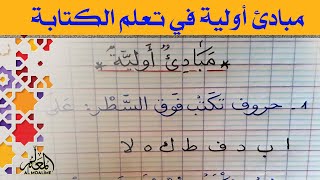 مبادئ أولية في تعلم الكتابة
* مَبَادِئُ أَوَلِيَّةٌ *
1 - حروف تكتب فوق السَّطْر: على
ا ب د ف ط ك ه لا
المعلم
ALMOALIME